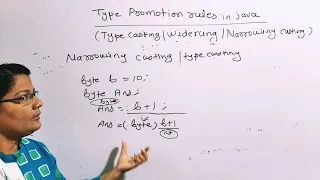 Type Promotion rules in java
(Type casting/widening/Narrowing casting)
Narrowing casting/typecasting
byte b = 10;
byte Ans;
byte
Ans = b+1;
Ans = (byte) b+1
int